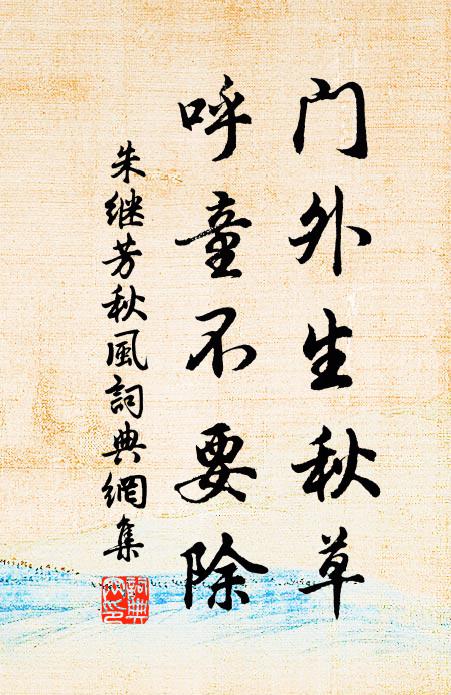 门外生秋草
呼童不要除
朱继芳秋風詞典網集